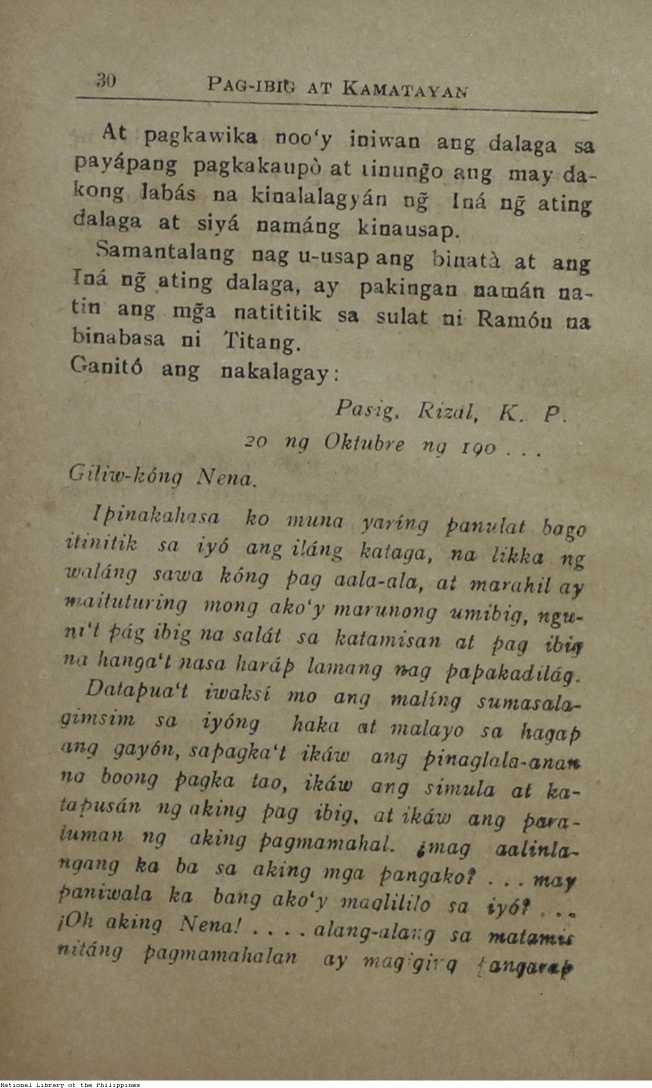 30 PAG-IBIG AT KAMATAYAN
At pagkawika noo‘y iniwan ang dalaga sa
payápang pagkakaupò at tinung̃o ang may da-
kong labás na kinalalagyán ng̃ Iná ng̃ ating
dalaga at siyá namáng kinausap.
Samantalang nag u-usap ang binatà at ang
Iná ng̃ ating dalaga, ay pakingan namán na-
tin ang mg̃a natititik sa sulat ni Ramón na
binabasa ni Titang.
Ganitó ang nakalagay:
Pasig, Rizál, K. P.
20 ng Oktubre ng 190...
Giliw-kóng Nena.
Ipinakahasa ko muna yaríng panulat bago
itinitik sa iyó ang iláng kataga, na likka ng
waláng sawa kóng pag aala-ala, at marahil ay
maituturing mong ako‘y marunong umibig, ngu-
ni‘t pág ibig na salát sa katamisan at pag ibig
na hanga‘t nasa haráp lamang nag papakadilág.
Datapua‘t iwaksí mo ang malíng sumasala-
gimsim sa iyóng haka at malayo sa hagap
ang gayón, sapagka‘t ikáw ang pinaglala-anan
na boong pagka tao, ikáw ang simula at ka-
tapusán ng aking pag ibig, at ikáw ang para-
luman ng aking pagmamahal. ¿mag aalinla-
ngang ka ba sa aking mga pangako? ... may
paniwala ka bang ako‘y maglililo sa iyó? ...
¡Oh aking Nena! .... alang-alang sa matamis
nitáng pagmamahalan ay magiging pangarap
National Library of the Philippines